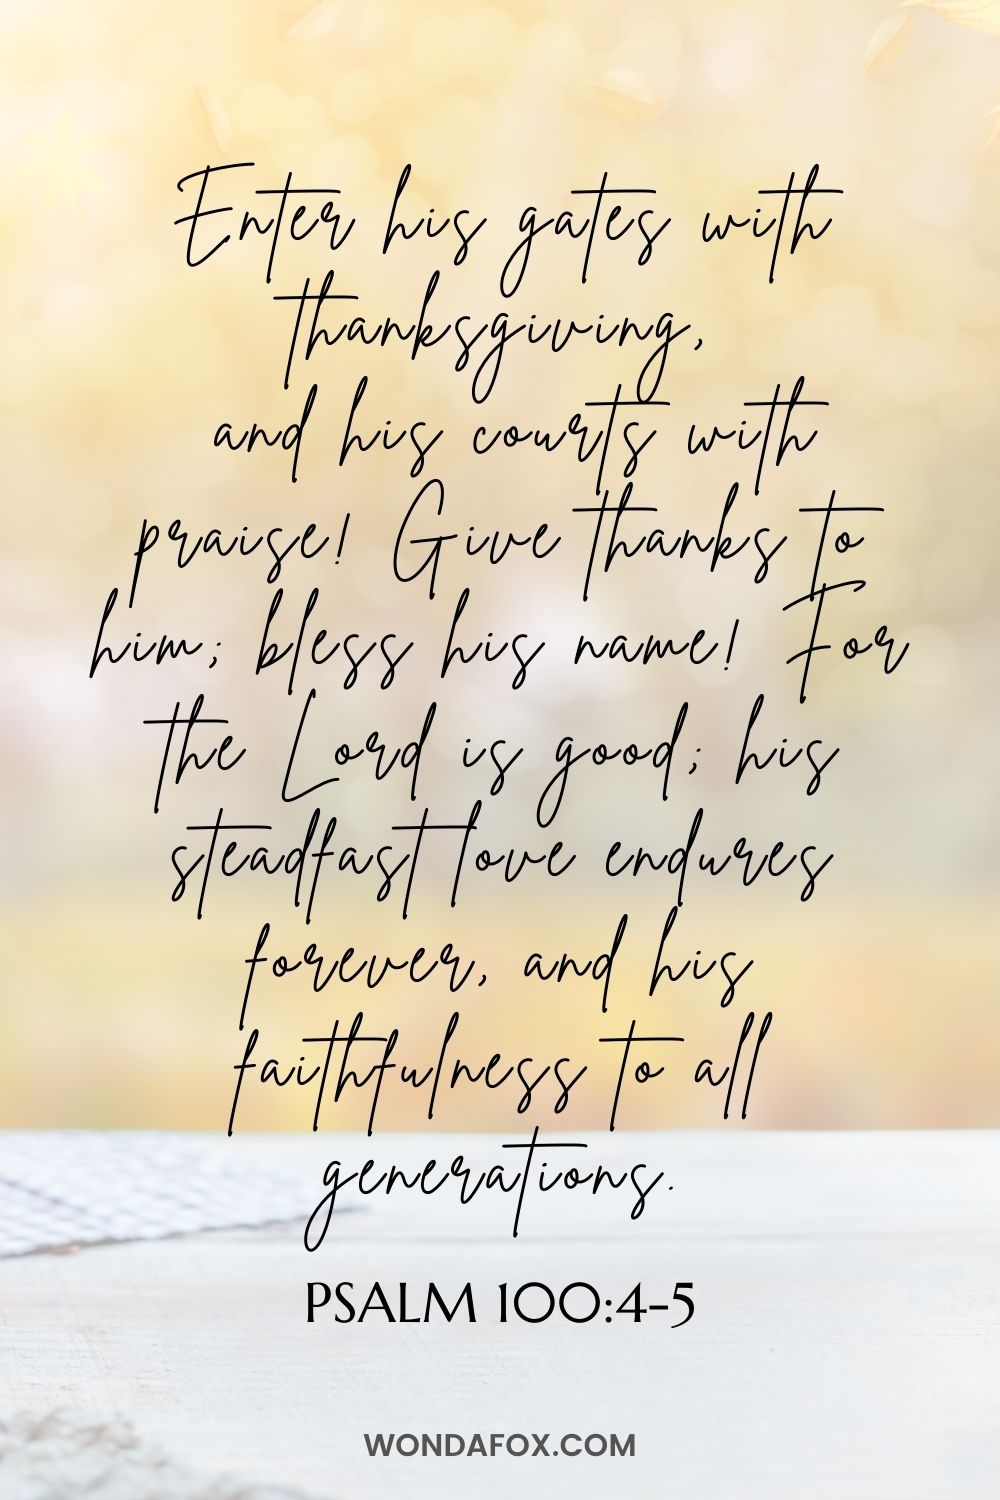 Enter his gates with
thanksgiving,
and his courts with
praise! Give thanks to
him; bless his name! For
the Lord is good; his
steadfast love endures
forever, and his
faithfulness to all
generations.
PSALM 100:4-5
WONDAFOX.COM